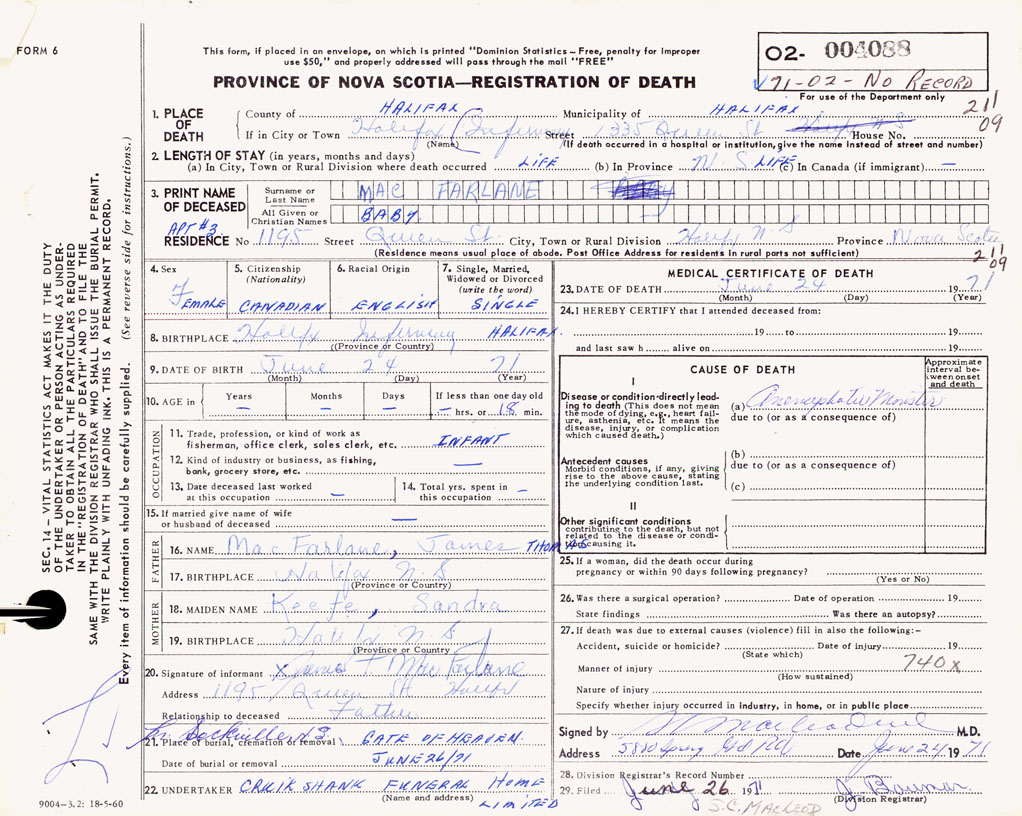 FORM 6
This form, if placed in an envelope, on which is printed "Dominion Statistics – Free, penalty for improper
use $50," and properly addressed will pass through the mail "FREE"
PROVINCE OF NOVA SCOTIA—REGISTRATION OF DEATH
02- 004088
√71-02- NO RECORD
For use of the Department only
211
09
1. PLACE OF DEATH
County of HALIFAX Municipality of HALIFAX
If in City or Town Halifax (Infirmary Street 1335 Queen St House No.
(Name) (If death occurred in a hospital or institution, give the name instead of street and number)
2. LENGTH OF STAY (in years, months and days)
(a) In City, Town or Rural Division where death occurred LIFE (b) In Province N.S LIFE (c) In Canada (if immigrant) —
3. PRINT NAME OF DECEASED
Surname or Last Name MAC FARLANE
All Given or Christian Names BABY
APT #3
RESIDENCE No 1195 Street Queen St. City, Town or Rural Division Halifx N.S Province Nova Scotia
(Residence means usual place of abode. Post Office Address for residents in rural parts not sufficient)
211
09
4. Sex FEMALE
5. Citizenship (Nationality) CANADIAN
6. Racial Origin ENGLISH
7. Single, Married, Widowed or Divorced (write the word) SINGLE
8. BIRTHPLACE Halifx Infirmary HALIFAX.
(Province or Country)
9. DATE OF BIRTH June 24 71
(Month) (Day) (Year)
10. AGE in Years — Months — Days — If less than one day old — hrs. or 18 min.
OCCUPATION
11. Trade, profession, or kind of work as
fisherman, office clerk, sales clerk, etc. INFANT
12. Kind of industry or business, as fishing,
bank, grocery store, etc. —
13. Date deceased last worked
at this occupation —
14. Total yrs. spent in
this occupation —
15. If married give name of wife
or husband of deceased —
FATHER
16. NAME MacFarlane, James THOMAS
17. BIRTHPLACE Halifax N.S
(Province or Country)
MOTHER
18. MAIDEN NAME Keefe, Sandra
19. BIRTHPLACE Halifx N.S
(Province or Country)
20. Signature of informant x James T MacFarlane
Address 1195 Queen St Halifx
Relationship to deceased Father
Sackville N.S.
21. Place of burial, cremation or removal GATE OF HEAVEN.
Date of burial or removal JUNE 26/71
22. UNDERTAKER CRUIKSHANK FUNERAL HOME LIMITED
(Name and address)
9004–3.2: 18-5-60
MEDICAL CERTIFICATE OF DEATH
23. DATE OF DEATH June 24 1971
(Month) (Day) (Year)
24. I HEREBY CERTIFY that I attended deceased from:
19 to 19
and last saw h alive on 19
CAUSE OF DEATH
Approximate interval between onset and death
I
Disease or condition directly leading to death (This does not mean the mode of dying, e.g., heart failure, asthenia, etc. It means the disease, injury, or complication which caused death.)
(a) Anencephalic Monster
due to (or as a consequence of)
Antecedent causes
Morbid conditions, if any, giving rise to the above cause, stating the underlying condition last.
(b)
due to (or as a consequence of)
(c)
II
Other significant conditions
contributing to the death, but not related to the disease or condition causing it.
25. If a woman, did the death occur during
pregnancy or within 90 days following pregnancy?
(Yes or No)
26. Was there a surgical operation? Date of operation 19
State findings Was there an autopsy?
27. If death was due to external causes (violence) fill in also the following:–
Accident, suicide or homicide? Date of injury 19
(State which)
740x
Manner of injury
(How sustained)
Nature of injury
Specify whether injury occurred in industry, in home, or in public place
Signed by M.D.
Address 5880 Spring Gd Rd Date June 24 1971
28. Division Registrar's Record Number
29. Filed June 26 1971 J. Bowman
(Division Registrar)
S.C. MACLEOD
SEC. 14 – VITAL STATISTICS ACT MAKES IT THE DUTY
OF THE UNDERTAKER OR PERSON ACTING AS UNDER-
TAKER TO OBTAIN ALL THE PARTICULARS REQUIRED
IN THE "REGISTRATION OF DEATH" AND TO FILE THE
SAME WITH THE DIVISION REGISTRAR WHO SHALL ISSUE THE BURIAL PERMIT.
WRITE PLAINLY WITH UNFADING INK. THIS IS A PERMANENT RECORD.
Every item of information should be carefully supplied. (See reverse side for instructions.)